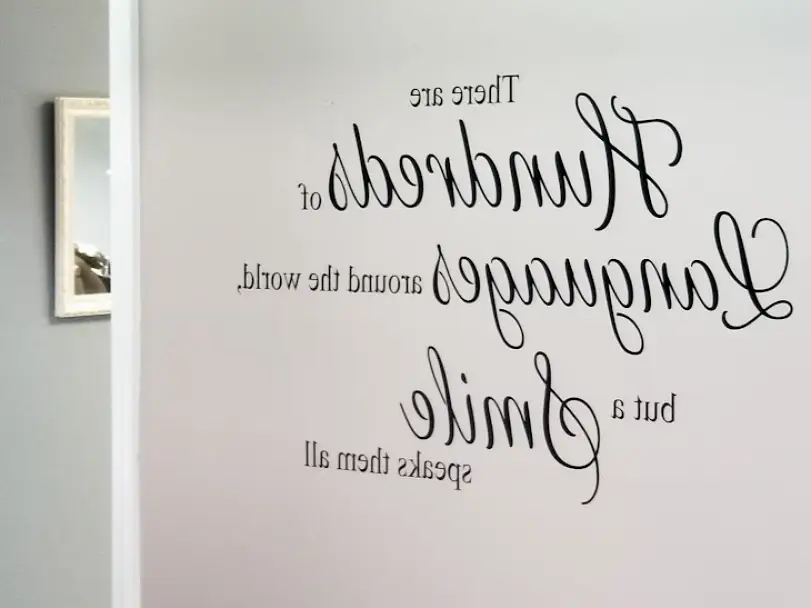 There are
Hundreds of
Languages around the world,
but a Smile
speaks them all